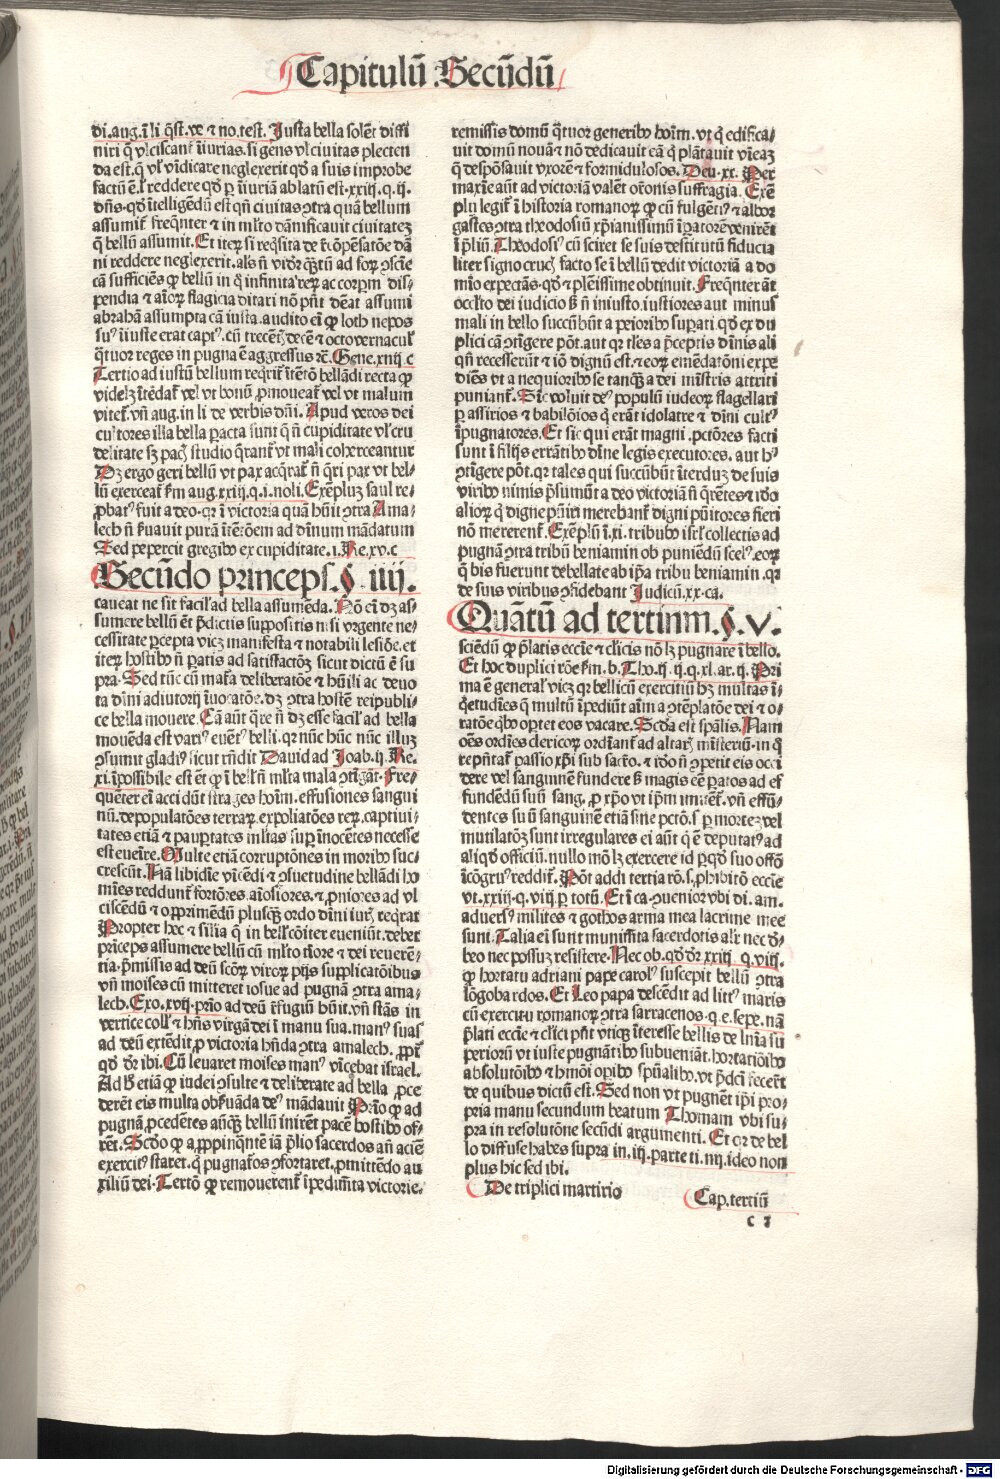 Capitulū Secūdū
di. aug. ī li q̄st. ve ⁊ no. test. Justa bella solēt diffi
niri q̄ vlciscant̄ iīurias. si gens vl̓ ciuitas plecten
da est. q̄ vl̓ vīdicare neglexerit qd̓ a suis improbe
factū ē. l̓ reddere qd̓ ꝑ iīuriā ablatū est. xxiij. q. ij.
dn̄s. qd̓ ītelligēdū est qn̄ ciuitas ꝯtra quā bellum
assumit̄ freq̄nter ⁊ in ml̓to dānificauit ciuitatez
q̄ bellū assumit. Et iterꝫ si reqͥsita de rͤcōpēsatōe dā
ni reddere neglexerit. als̄ n̄ vid̓r
cā sufficiēs ꝙ bellū in qͦ infinita reꝝ ac corpꝝ dis⸗
pendia ⁊ aīoꝝ flagicia ditari nō pn̄t dēat assumi
abrahā assumpta cā iusta. audito eī ꝙ loth nepos
suꝰ iīuste erat captꝰ. cū trecētꝭ decē ⁊ octo vernaculꝭ
qͣtuor reges in pugna ē aggressus rc̄. Gene. xiiij c
Tertio ad iustū bellum reqͥrit̄ ītētō bellādi recta ꝙ
videlꝫ ītēdat̄ vel vt bonū ꝓmoueat̄ vel vt malum
vitet̄. vn̄ aug. in li de verbis dn̄i. Apud veros dei
cultores illa bella ꝑacta sunt q̄ n̄ cupiditate vl̓ cru
delitate sꝫ pacꝭ studio q̄runt̄ vt mali coherceantur
Dꝫ ergo geri bellū vt pax acqͥrat̄ n̄ q̄ri pax vt bel⸗
lū exerceat̄ ẜm aug. xxiij. q. i. noli. Exēpluꝫ saul re⸗
ꝓbatꝰ fuit a deo. qꝛ ī victoria quā hūit ꝯtra Ama⸗
lech n̄ ẜuauit purā ītētōem ad dīnum mādatum
Sed pepercit gregibꝰ ex cupiditate. i. Re. xv. c
Secūdo princeps. §. iiij.
caueat ne sit facilꝭ ad bella assumēda. Nō eī dꝫ as⸗
sumere bellū ēt p̄dictis suppositis nisi vrgente ne⸗
cessitate ꝑcepta vicꝫ manifesta ⁊ notabili lesiōe. et
iterꝫ hostibꝰ n̄ ꝑatis ad satisfactōꝫ sicut dictū ē su
pra. Sed tūc cū matͣa deliberatōe ⁊ hūili ac deuo
ta dīni adiutorij īuocatōe. dꝫ ꝯtra hostē reipubli⸗
ce bella mouere. Cā aūt qͣre n̄ dꝫ esse facilꝭ ad bella
mouēda est variꝰ euētꝰ belli. qꝛ nūc hūc nūc illuꝫ
ꝯsumit gladiꝰ sicut rn̄dit Dauid ad Joab. ij. Re.
xi. īpossibile est ēt ꝙ ī bell̓ n̄ ml̓ta mala ꝯtīgāt. Fre⸗
quēter eī accidūt strages hoīm. effusiones sangui
nū. depopulatōes terraꝝ. expoliatōes reꝝ. captiui⸗
tates etiā ⁊ paupertates ml̓tas suꝑ īnocētes necesse
est eueīre. Multe etiā corruptōnes in moribꝰ suc⸗
crescūt. Nā libidīe vīcēdi ⁊ ꝯsuetudine bellādi ho
mīes reddunt̄ fortōres. aīosiores. ⁊. ꝓniores ad vl
ciscēdū ⁊ opprimēdū plusqͣꝫ ordo dīni iurꝭ reqͥrat
Propter hec ⁊ sīlia q̄ in bell̓ cōiter eueniūt. debet
prīceps assumere bellū cū ml̓to tīore ⁊ dei reuerē⸗
tia. p̄missis ad deū sctōꝝ viroꝝ pijs supplicatōibus
vn̄ moises cū mitteret iosue ad pugnā ꝯtra ama⸗
lech. Exo. xvij. prīo ad deū rͤfugiū hūit. vn̄ stās in
vertice collꝭ ⁊ hn̄s virgā dei ī manu sua. manꝰ suas
ad deū extēdit ꝓ victoria hn̄da ꝯtra amalech. ꝓpt̄
qd̓ dr̄ ibi. Cū leuaret moises manꝰ vīcebat israel.
Ad h̓ etiā ꝙ iudei ꝯsulte ⁊ deliberate ad bella ꝓce
derēt eis multa obẜuāda deꝰ mādauit Prīo ꝙ ad
pugnā ꝓcedētes anteqͣꝫ bellū inirēt pacē hostibꝰ of⸗
rēt. Scd̓o ꝙ appropinq̄nte iā p̄lio sacerdos an̄ aciē
exercitꝰ staret. qͥ pugnatͦs ꝯfortaret. ꝓmittēdo au
xiliū dei. Tertō ꝙ remouerent̄ īpedimēta victorie.
remissis domū qͣtuor generibꝰ hoīm. vt qͥ edifica⸗
uit domū nouā ⁊ nō dedicauit eā qͥ plātauit vīeaꝫ
qͥ despōsauit vxorē ⁊ formidulosos. Deu. xx. Per
maxīe aūt ad victoriā valēt orōnis suffragia. Exē
plū legit̄ ī historia romanoꝝ ꝙ cū fulgētiꝰ ⁊ albor
gastes ꝯtra theodosiū xp̄ianissimū īꝑatorē venirēt
ī p̄liū. Theodosiꝰ cū sciret se suis destitutū fiducia
liter signo crucꝭ facto se ī bellū dedit victoriā a do
mīo expectās. qd̓ ⁊ plēissime obtinuit. Freq̄nter āt
occl̓to dei iudicio sꝫ n̄ iniusto. iustiores aut minus
mali in bello succūbūt a peioribꝰ suꝑati qd̓ ex du
plici cā ꝯtīgere pōt. aut qꝛ tl̓es a p̄ceptis dīnis ali
qn̄ recesserūt ⁊ iō dignū est. ⁊ eoꝝ emēdatōni expe
diēs vt a nequioribꝰ se tanqͣꝫ a dei mīstris attriti
puniant̄. Sic voluit deꝰ populū iudeoꝝ flagellari
ꝑ assirios ⁊ babilōios qͥ erāt idolatre ⁊ dīni cultꝰ
īpugnatores. Et sic qui erāt magni pctōres facti
sunt ī filijs errātibꝰ dīne legis executores. aut hͦ
ꝯtīgere pōt. qꝛ tales qui succūbūt īterduꝫ de suis
viribꝰ nimis p̄sumūt a deo victoriā n̄ q̄rētes ⁊ iō
alioꝝ qͥ digne pūiri merebant̄ digni pūitores fieri
nō mererent̄. Exēplū ī. xi. tribubꝰ isrl̓ collectis ad
pugnā ꝯtra tribū beniamin ob puniēdū scelꝰ. eoꝝ
q̄ bis fuerunt debellate ab ip̄a tribu beniamin. qꝛ
de suis viribus ꝯfidebant Judicū. xx. ca.
Quātū ad tertium. §. v.
sciēdū ꝙ p̄latis eccīe ⁊ cl̓icis nō lꝫ pugnare ī bello.
Et hoc duplici rōe ẜm. b. Tho. ij. ij. q. xl. ar. ij. Pri
ma ē generalꝭ vicꝫ qꝛ bellicū exercitiū hꝫ multas ī⸗
qͥetudīes q̄ multū īpediūt aīm a ꝯtēplatōe dei ⁊ o⸗
ratōe qͥbꝰ oꝑtet eos vacare. Scd̓a est spālis. Nam
oēs ordīes clericoꝝ ordīant̄ ad altarꝭ misteriū. in qͦ
rep̄ntat̄ passio xp̄i sub sacr̄o. ⁊ iō n̄ ꝯpetit eis occi
dere vel sanguinē fundere sꝫ magis eē ꝑatos ad ef
fundēdū suū sang. ꝓ xp̄o vt ip̄m imitent̄. vn̄ effū⸗
dentes suū sanguinē etiā sine pctō. s. ꝑ mortez vel
mutilatōꝫ sunt irregulares ei aūt qͥ ē deputatꝰ ad
aliqd̓ officiū. nullo mō lꝫ exercere id ꝑ qd̓ suo offō
īcōgruꝰ reddit̄. Pōt addi tertia rō. s. ꝓhibitō eccīe
vt. xxiij. q. viij. ꝑ totū. Et ī ca. ꝯuenior vbi di. am.
aduersꝰ milites ⁊ gothos arma mea lacrime mee
sunt. Talia eī sunt munimēta sacerdotis al̓r nec dͤ⸗
beo nec possuꝫ resistere. Nec ob. qd̓ dr̄. xxiij. q. viij.
ꝙ hortatu adriani pape carolꝰ suscepit bellū ꝯtra
lōgobardos. Et Leo papa descēdit ad littꝰ maris
cū exercitu romanoꝝ ꝯtra sarracenos. q. e. sepe. nā
p̄lati eccīe ⁊ cl̓ici pn̄t vtiqꝫ īteresse bellis de lnīa su
perioꝝ vt iuste pugnātibꝰ subueniāt. hortatiōibꝰ
absolutōibꝰ ⁊ hmōi oꝑibꝰ spūalibꝰ. vt p̄dcī fecerūt
de quibus dictū est. Sed non vt pugnēt ip̄i pro⸗
pria manu secundum beatum Thomam vbi su⸗
pra in resolutōne secūdi argumenti. Et qꝛ de bel
lo diffuse habes supra in. iij. parte ti. iiij. ideo non
plus hic sed ibi.
De triplici martirio Cap. tertiū
c 3
Digitalisierung gefördert durch die Deutsche Forschungsgemeinschaft - DFG